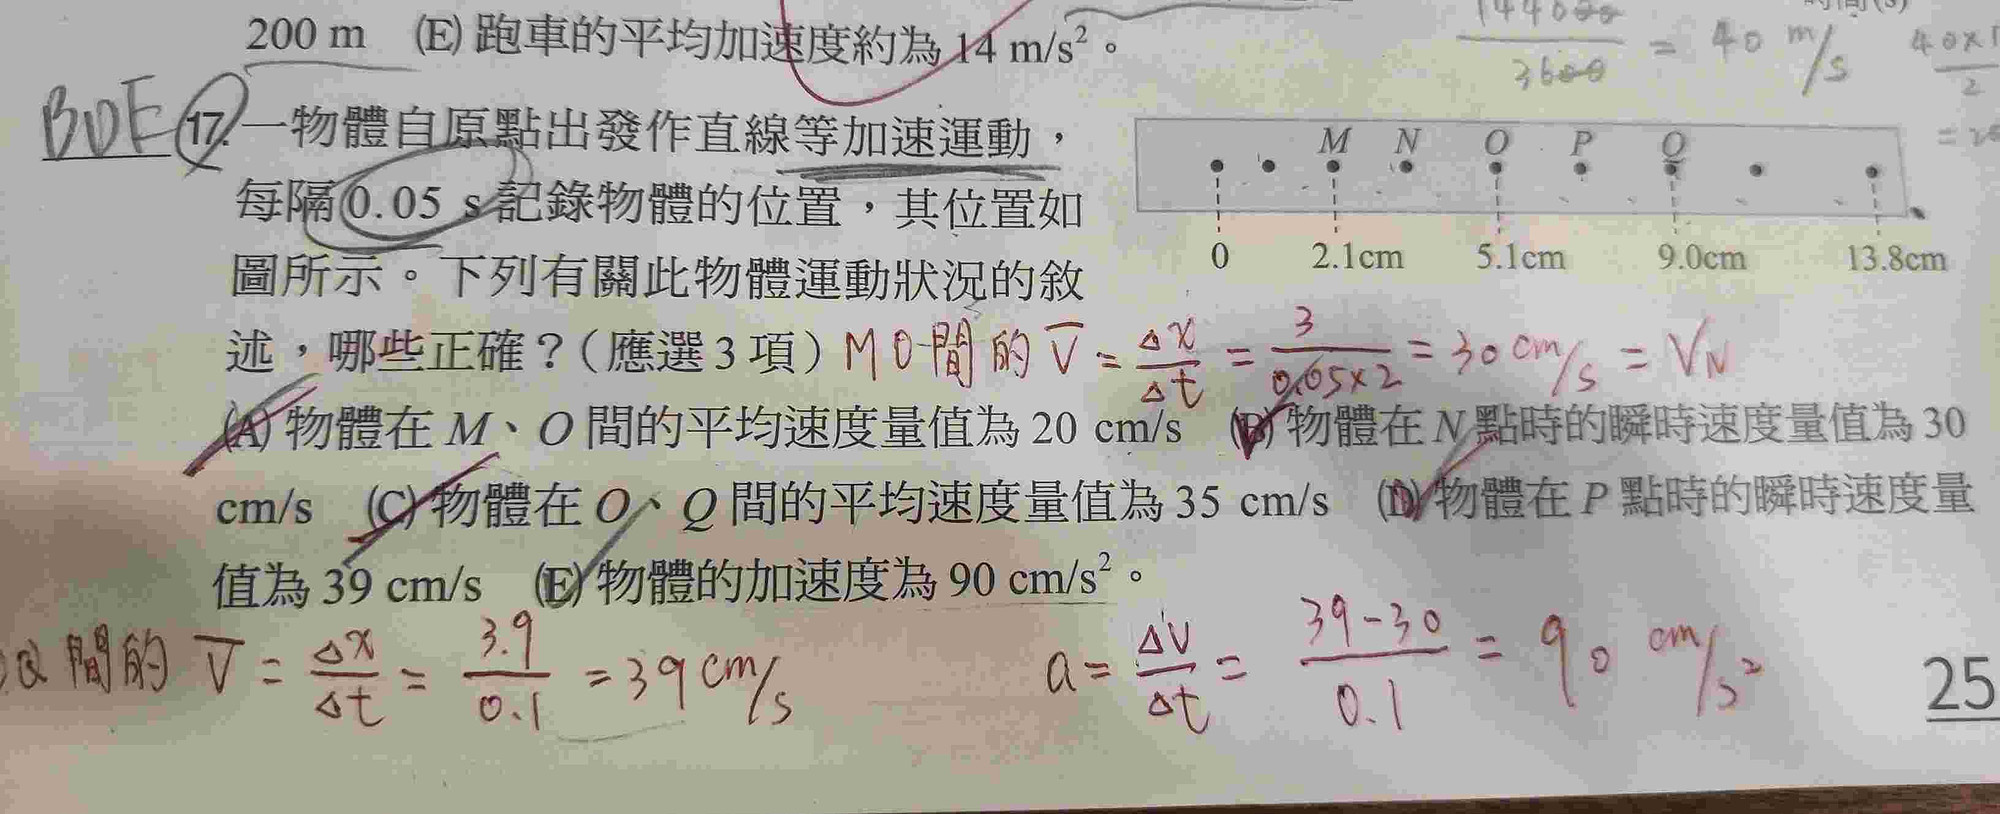 200 m (E) 跑車的平均加速度約為 14 m/s²。
144000
3600
= 40 m/s
BDE 17. 一物體自原點出發作直線等加速運動，
每隔 0.05 s 記錄物體的位置，其位置如
圖所示。下列有關此物體運動狀況的敘
述，哪些正確？（應選 3 項）
M N O P Q
0 2.1cm 5.1cm 9.0cm 13.8cm
MO間的 V̅ = Δx/Δt = 3/0.05×2 = 30 cm/s = VN
(A) 物體在 M、O 間的平均速度量值為 20 cm/s (B) 物體在 N 點時的瞬時速度量值為 30
cm/s (C) 物體在 O、Q 間的平均速度量值為 35 cm/s (D) 物體在 P 點時的瞬時速度量
值為 39 cm/s (E) 物體的加速度為 90 cm/s²。
Q 間的 V̅ = Δx/Δt = 3.9/0.1 = 39 cm/s
a = ΔV/Δt = 39-30/0.1 = 90 cm/s²
25